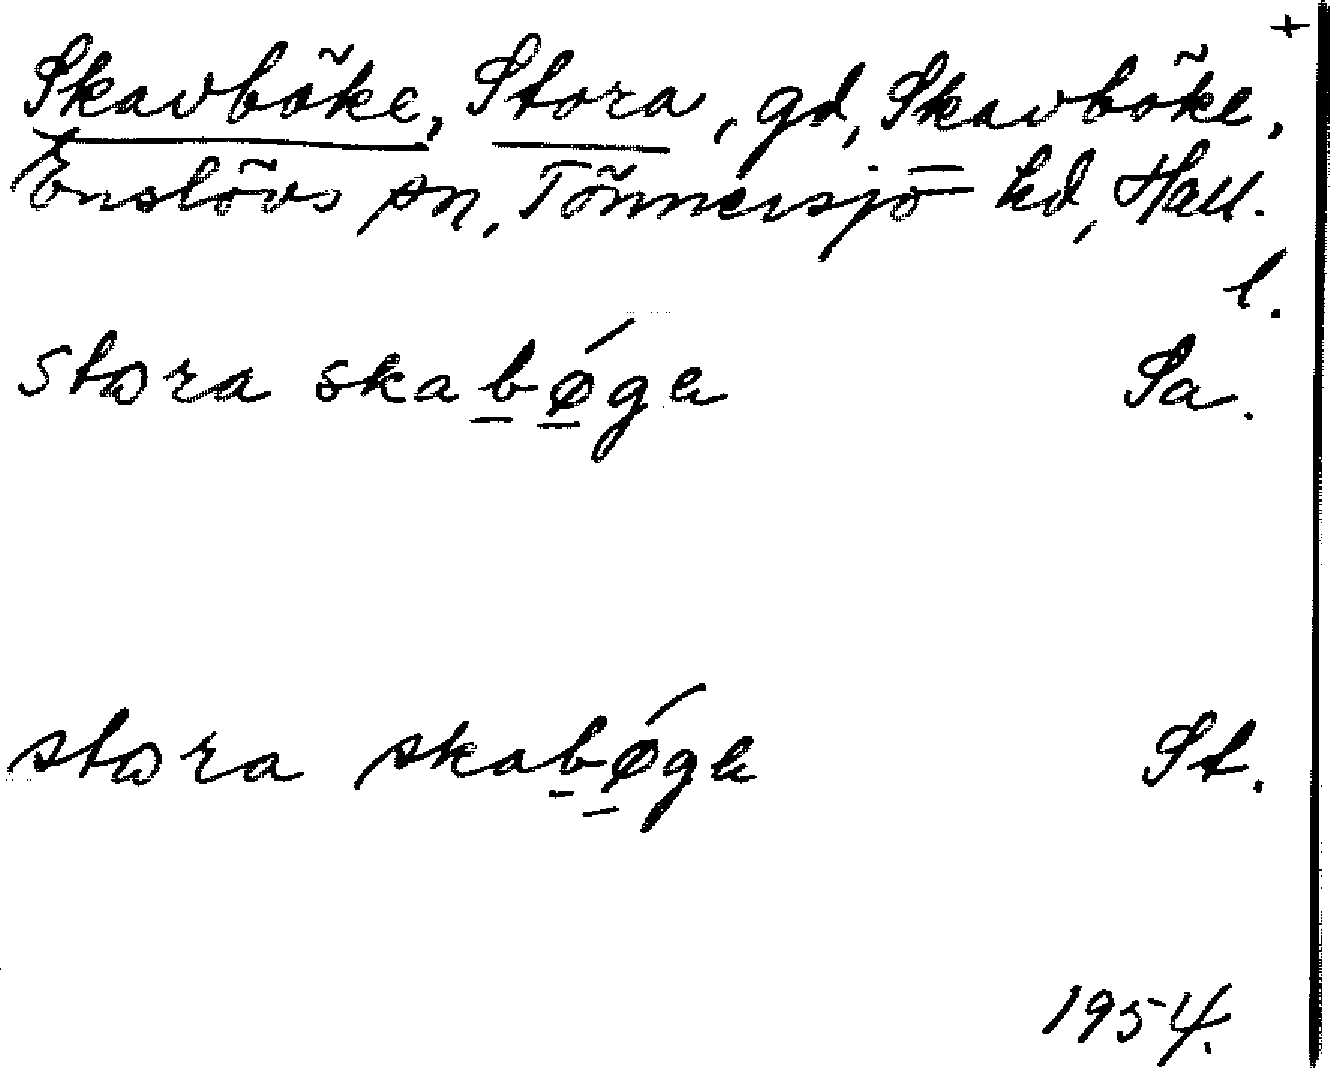 +
Skavböke, Stora, gd, Skavböke,
Enslövs sn, Tönnersjö hd, Hall.
l.
stora skabøge Sa.
stora skabøge St.
1954.